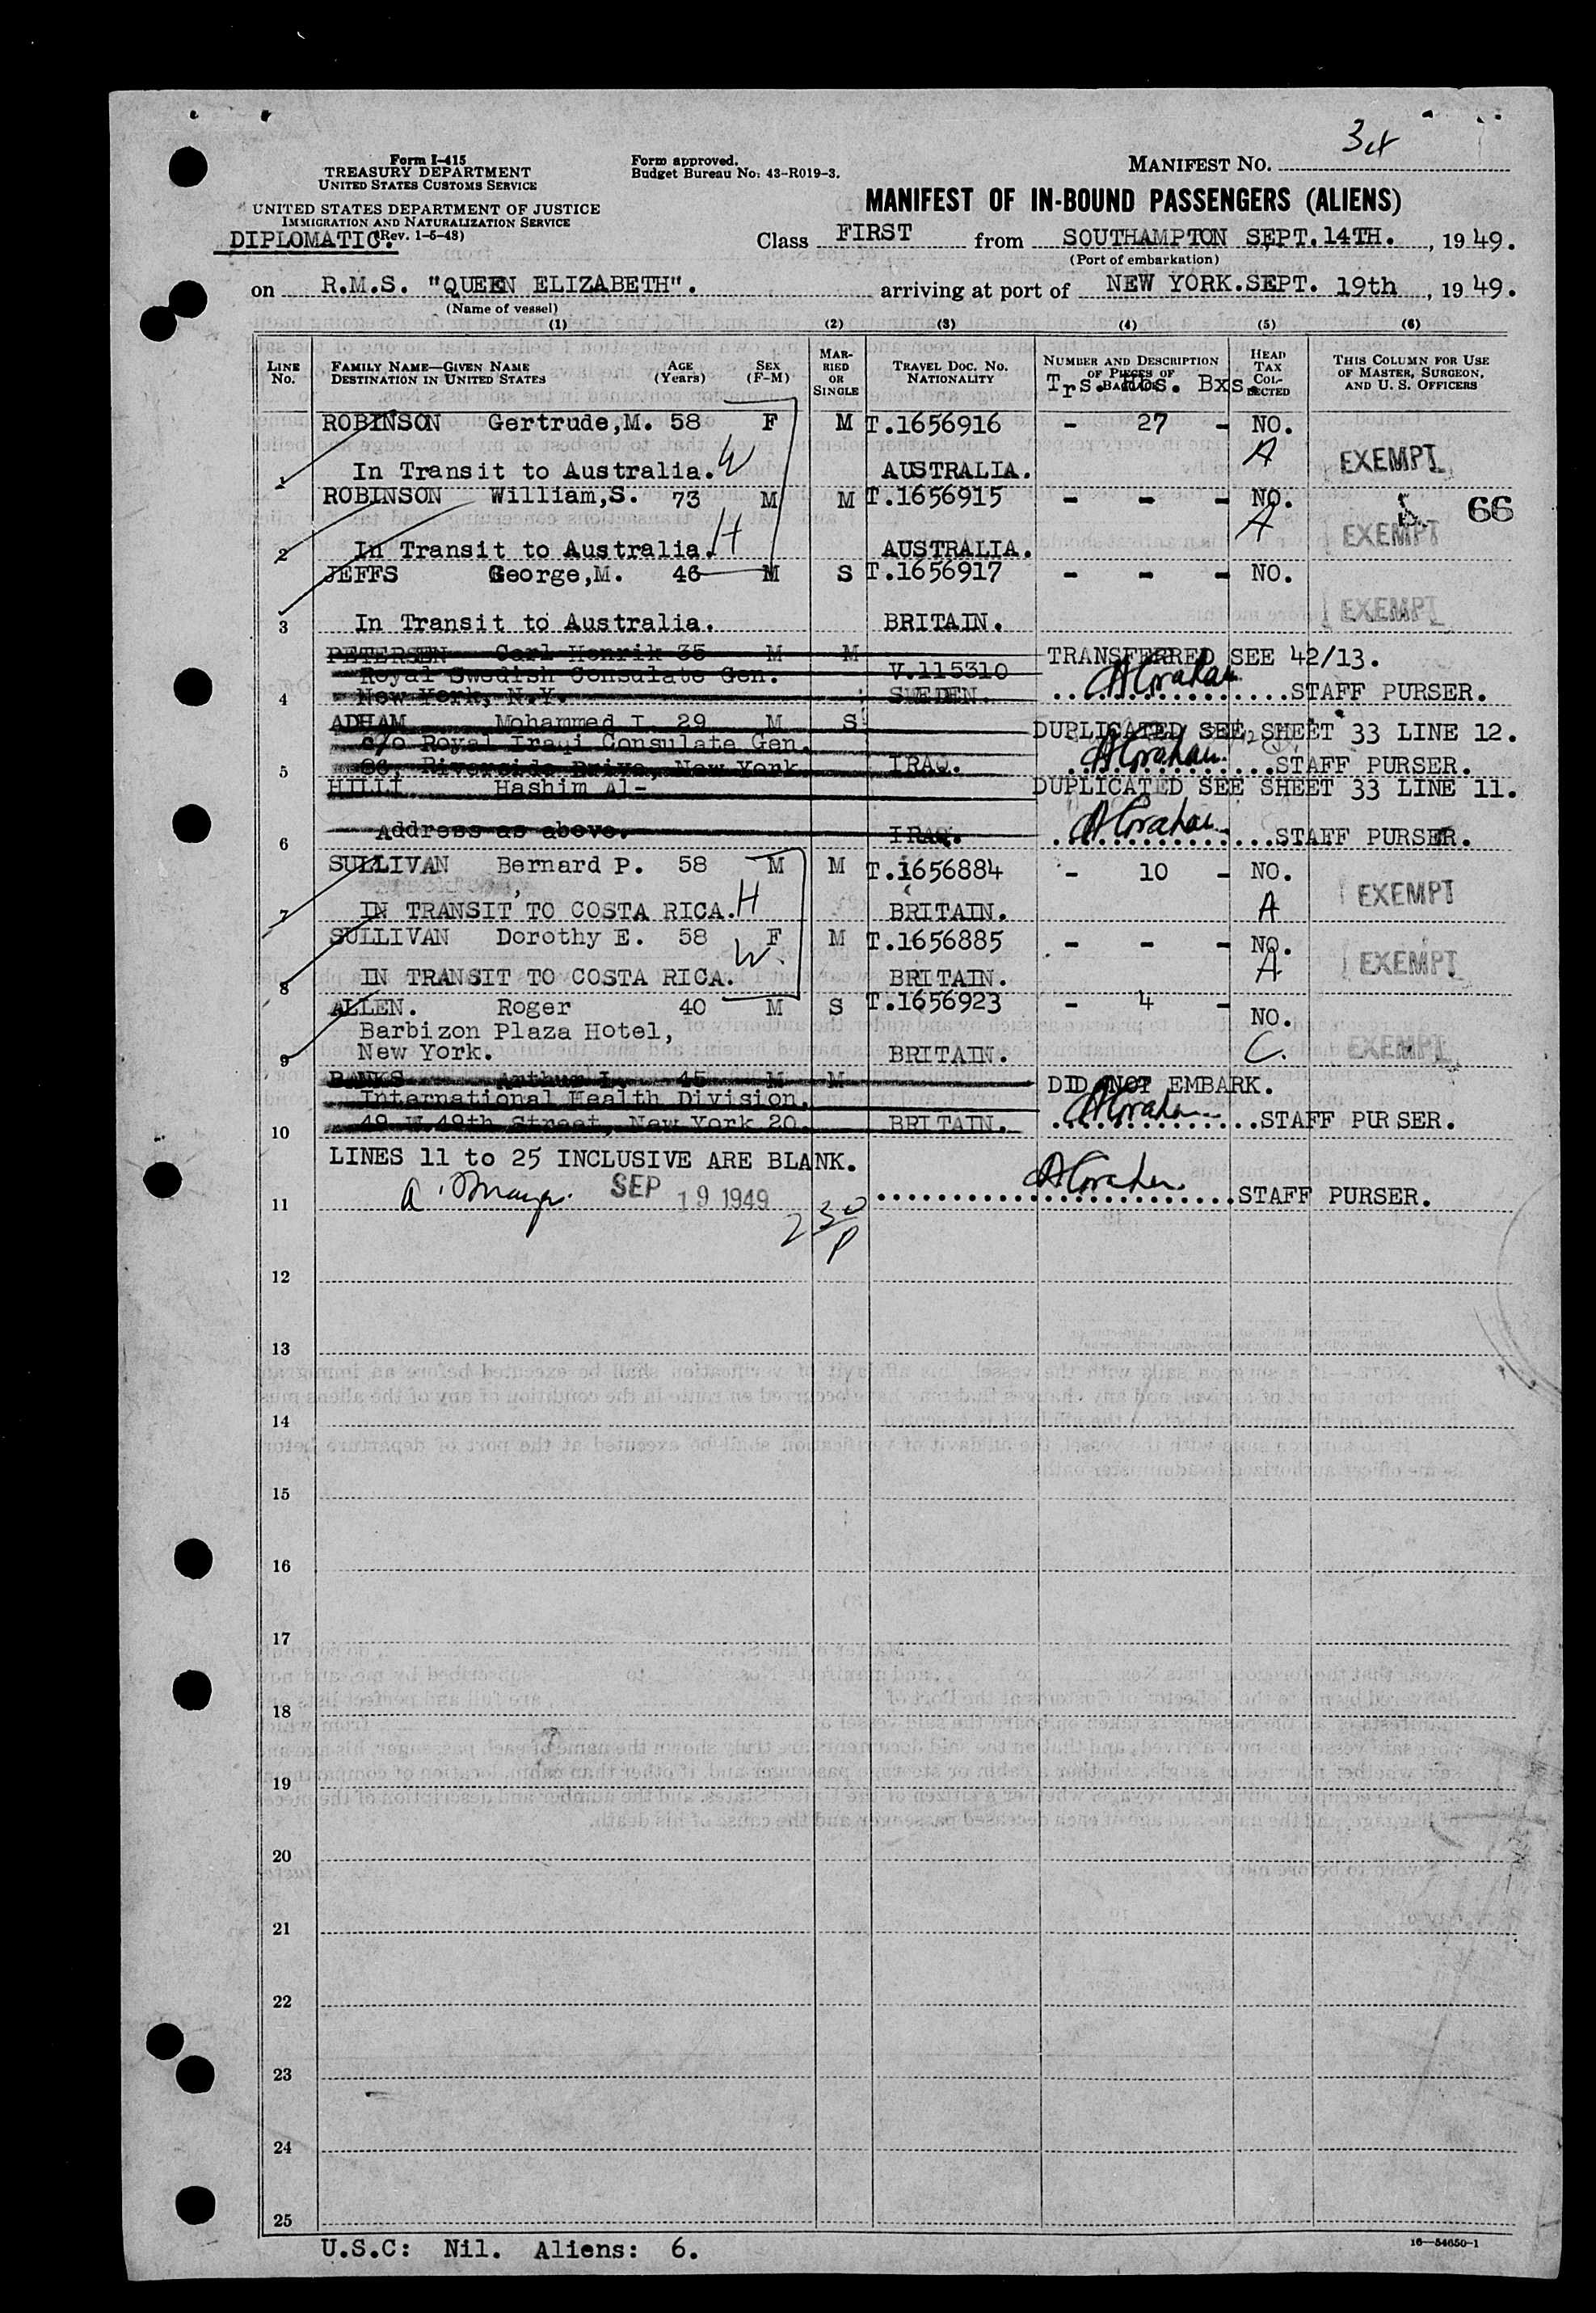 34
Form I-415
TREASURY DEPARTMENT
UNITED STATES CUSTOMS SERVICE
Form approved.
Budget Bureau No: 43-R019-3.
MANIFEST NO.
UNITED STATES DEPARTMENT OF JUSTICE
IMMIGRATION AND NATURALIZATION SERVICE
(Rev. 1-5-48)
DIPLOMATIC.
MANIFEST OF IN-BOUND PASSENGERS (ALIENS)
Class FIRST from SOUTHAMPTON SEPT.14TH., 1949.
(Port of embarkation)
on R.M.S. "QUEEN ELIZABETH". arriving at port of NEW YORK.SEPT. 19th, 1949.
(Name of vessel)
(1) (2) (3) (4) (5) (6)
LINE No. FAMILY NAME—GIVEN NAME DESTINATION IN UNITED STATES AGE (Years) SEX (F-M) MARRIED OR SINGLE TRAVEL DOC. NO. NATIONALITY NUMBER AND DESCRIPTION OF PIECES OF BAGGAGE HEAD TAX COLLECTED THIS COLUMN FOR USE OF MASTER, SURGEON, AND U. S. OFFICERS
Trs. Hbs. Bxs.
ROBINSON Gertrude,M. 58 F M T.1656916 - 27 - NO.
1 In Transit to Australia. W AUSTRALIA. A EXEMPT
ROBINSON William,S. 73 M M T.1656915 - - - NO. 66
2 In Transit to Australia. H AUSTRALIA. A EXEMPT
JEFFS George,M. 46 M S T.1656917 - - - NO.
3 In Transit to Australia. BRITAIN. EXEMPT
PETERSEN Carl Henrik 35 M M TRANSFERRED SEE 42/13.
Royal Swedish Consulate Gen. V.115310
4 New York, N.Y. SWEDEN. AGraham STAFF PURSER.
ADHAM Mohammed I. 29 M S DUPLICATED SEE SHEET 33 LINE 12.
c/o Royal Iraqi Consulate Gen.
5 Riverside Drive, New York IRAQ. AGraham STAFF PURSER.
HILLI Hashim Al- DUPLICATED SEE SHEET 33 LINE 11.
6 Address as above. IRAQ. AGraham STAFF PURSER.
SULLIVAN Bernard P. 58 M M T.1656884 - 10 - NO.
7 IN TRANSIT TO COSTA RICA. H BRITAIN. A EXEMPT
SULLIVAN Dorothy E. 58 F M T.1656885 - - - NO.
8 IN TRANSIT TO COSTA RICA. W BRITAIN. A EXEMPT
ALLEN. Roger 40 M S T.1656923 - 4 - NO.
Barbizon Plaza Hotel,
9 New York. BRITAIN. C. EXEMPT
BANKS Arthur L. 45 M M DID NOT EMBARK.
International Health Division.
10 49 W.49th Street, New York 20. BRITAIN. AGraham STAFF PURSER.
LINES 11 to 25 INCLUSIVE ARE BLANK.
11 SEP 19 1949 AGraham STAFF PURSER.
2 30 P
12
13
14
15
16
17
18
19
20
21
22
23
24
25
U.S.C: Nil. Aliens: 6.
16—54650-1